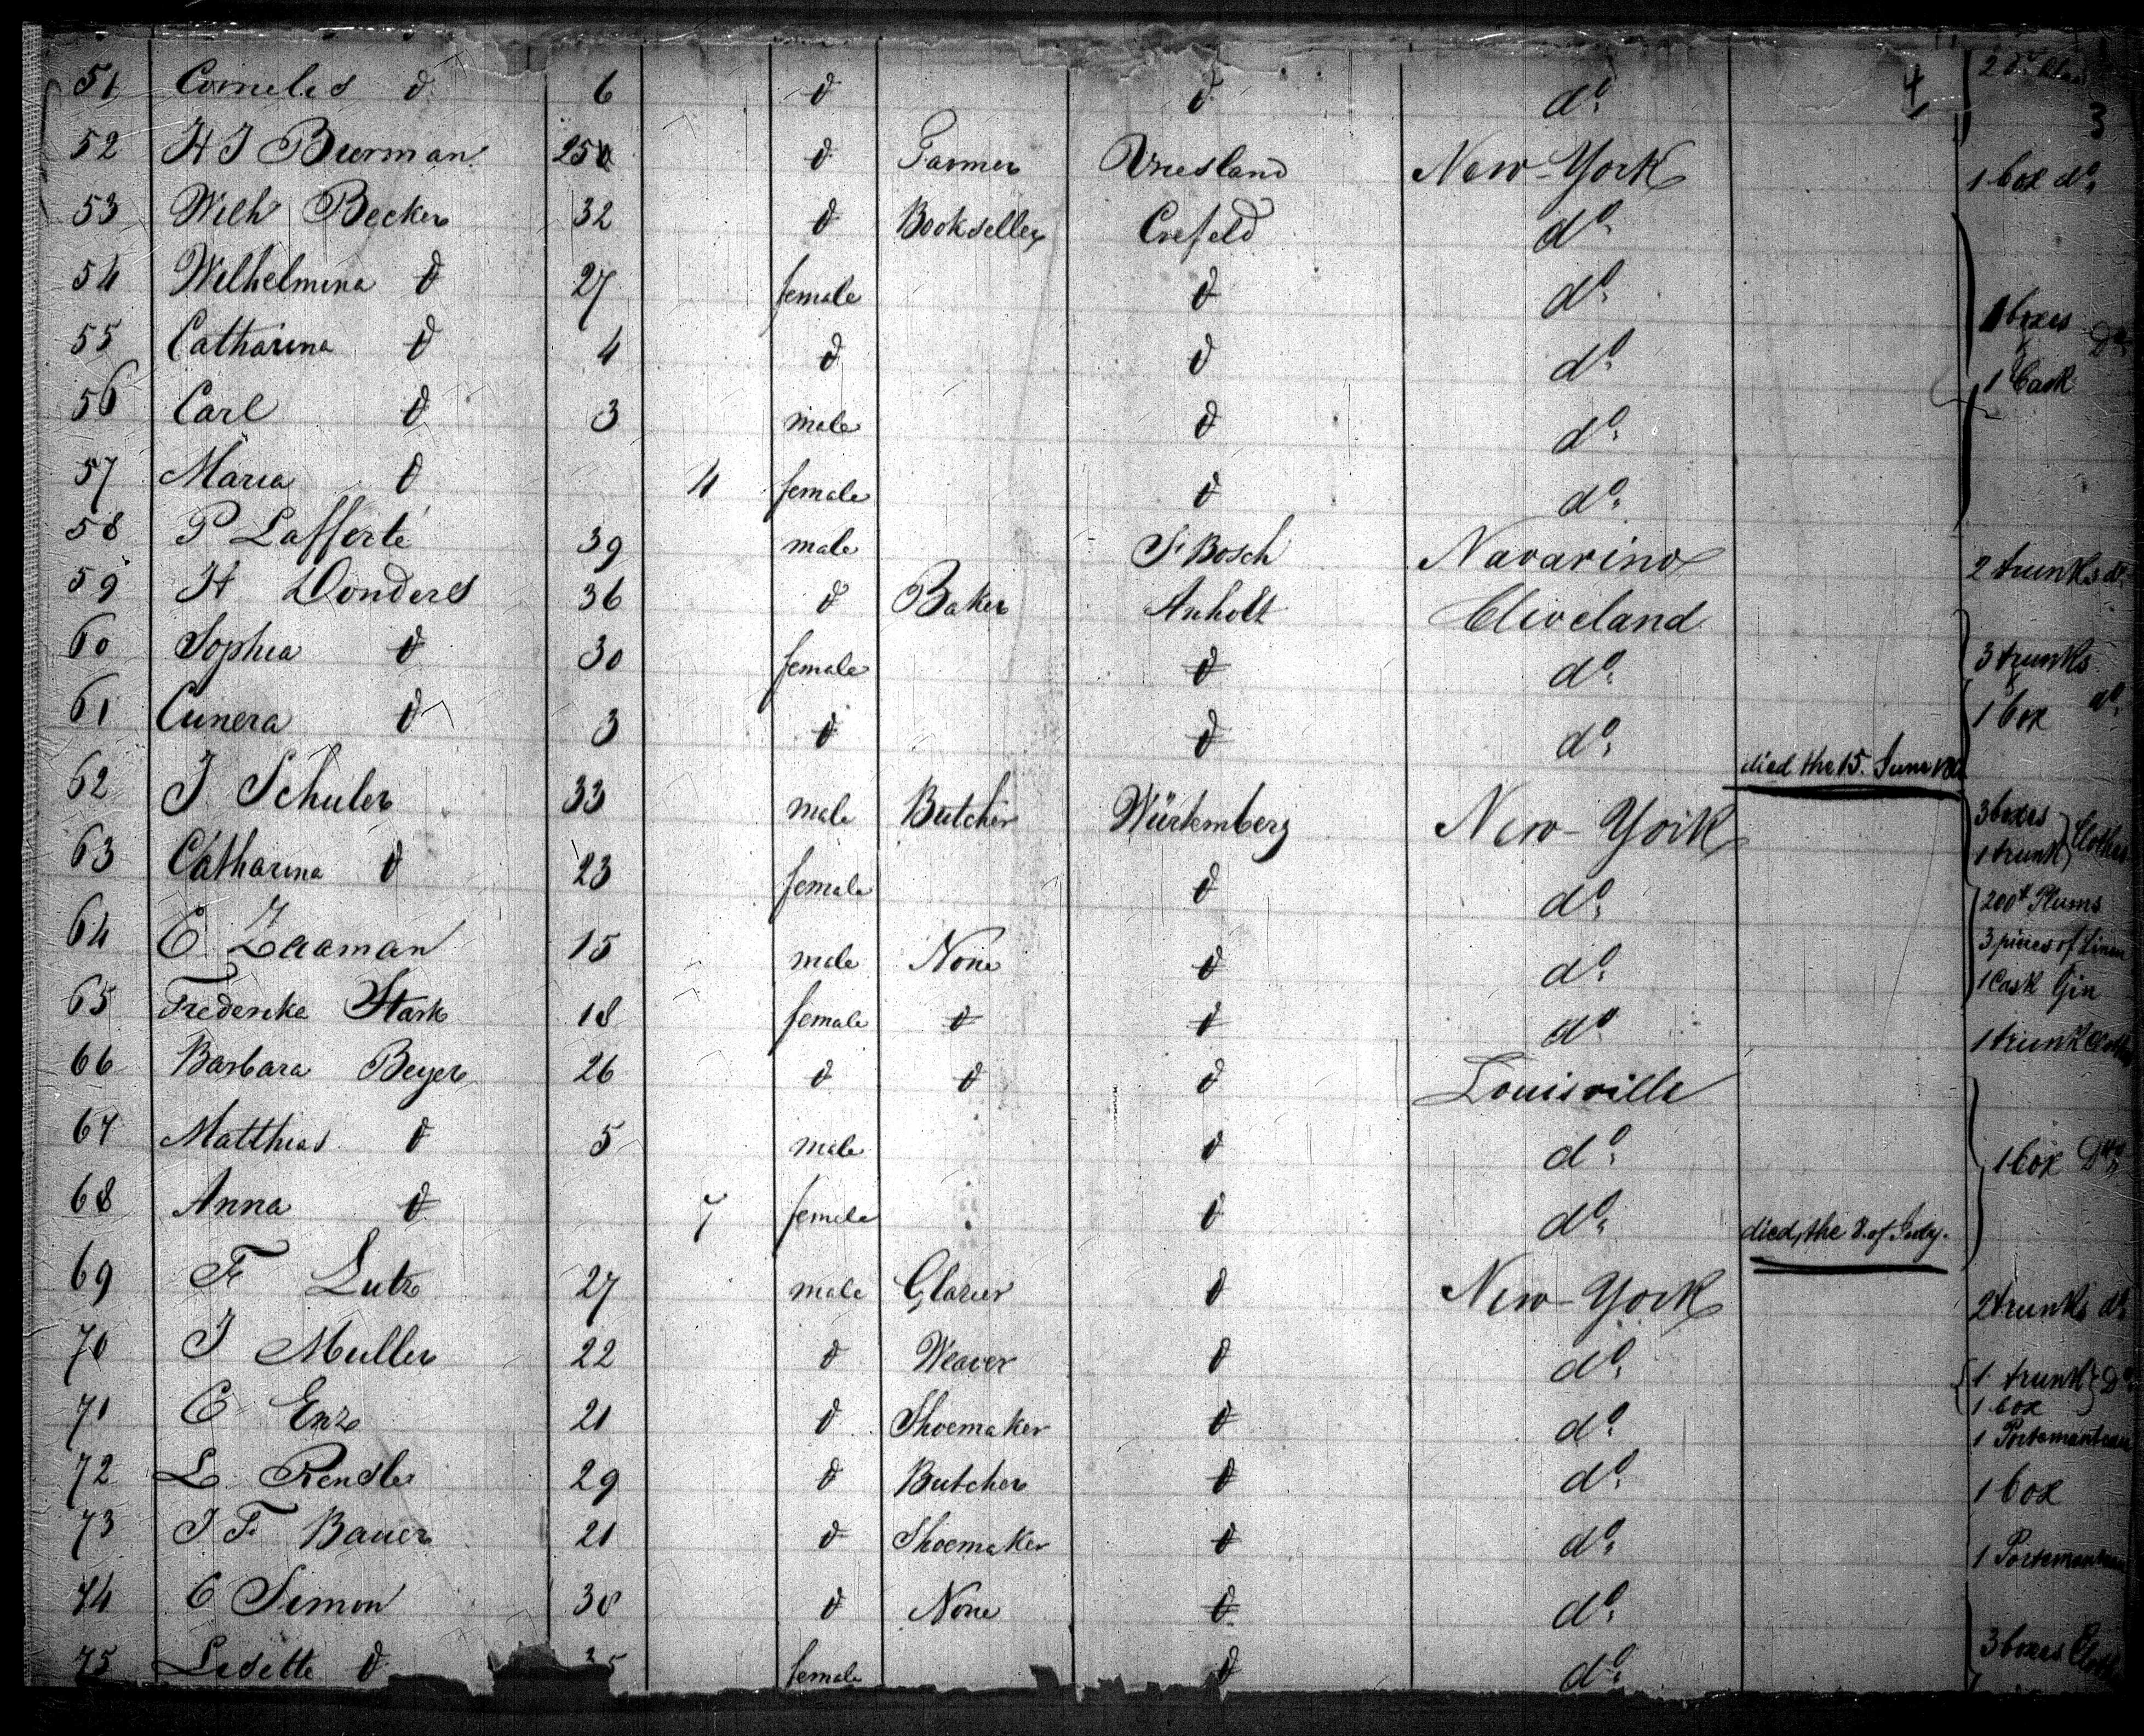 51 Cornelis d 6 d d do 4 2 do
3
52 H J Buerman 25 d Farmer Vriesland New-York 1 box do
53 Wilh Becker 32 d Bookseller Crefeld do
54 Wilhelmina d 27 female d do
55 Catharina d 4 d d do boxes Do
56 Carl d 3 male d do 1 Cask
57 Maria d 4 female d do
58 P Lafferté 39 male S Bosch Navarino 2 trunks do
59 H Donders 36 d Baker Anholt Cleveland
60 Sophia d 30 female d do 3 trunks
61 Cunera d 3 d d do 1 box do
died the 15. June
62 J Schuler 33 male Butcher Würtemberg New-York 3 boxes
63 Catharina d 23 female d do 1 trunk Clothes
200 Plums
64 C Zaaman 15 male None d do 3 pieces of Linen
65 Frederika Stark 18 female d d do 1 Cask Gin
66 Barbara Beyer 26 d d d Louisville 1 trunk
67 Matthias d 5 male d do 1 box
68 Anna d 7 female d do died, the 8. of July.
69 F Lutz 27 male Glazier d New-York 2 trunks do
70 J Muller 22 d Weaver d do 1 trunk Do
1 box
71 C Enz 21 d Shoemaker d do 1 Portemanteau
72 L Rendler 29 d Butcher d do 1 box
73 J F Bauer 21 d Shoemaker d do 1 Portemanteau
74 C Simon 30 d None d do
75 Lisette d 35 female d do 3 boxes